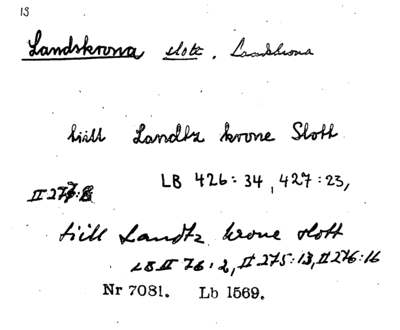 13
Landskrona slott. Landskrona
till Landtz krone Slott
LB 426:34, 427:23,
II 277:8
till Landtz krone slott
LB II 76:2, II 275:13, II 276:16
Nr 7081. Lb 1569.